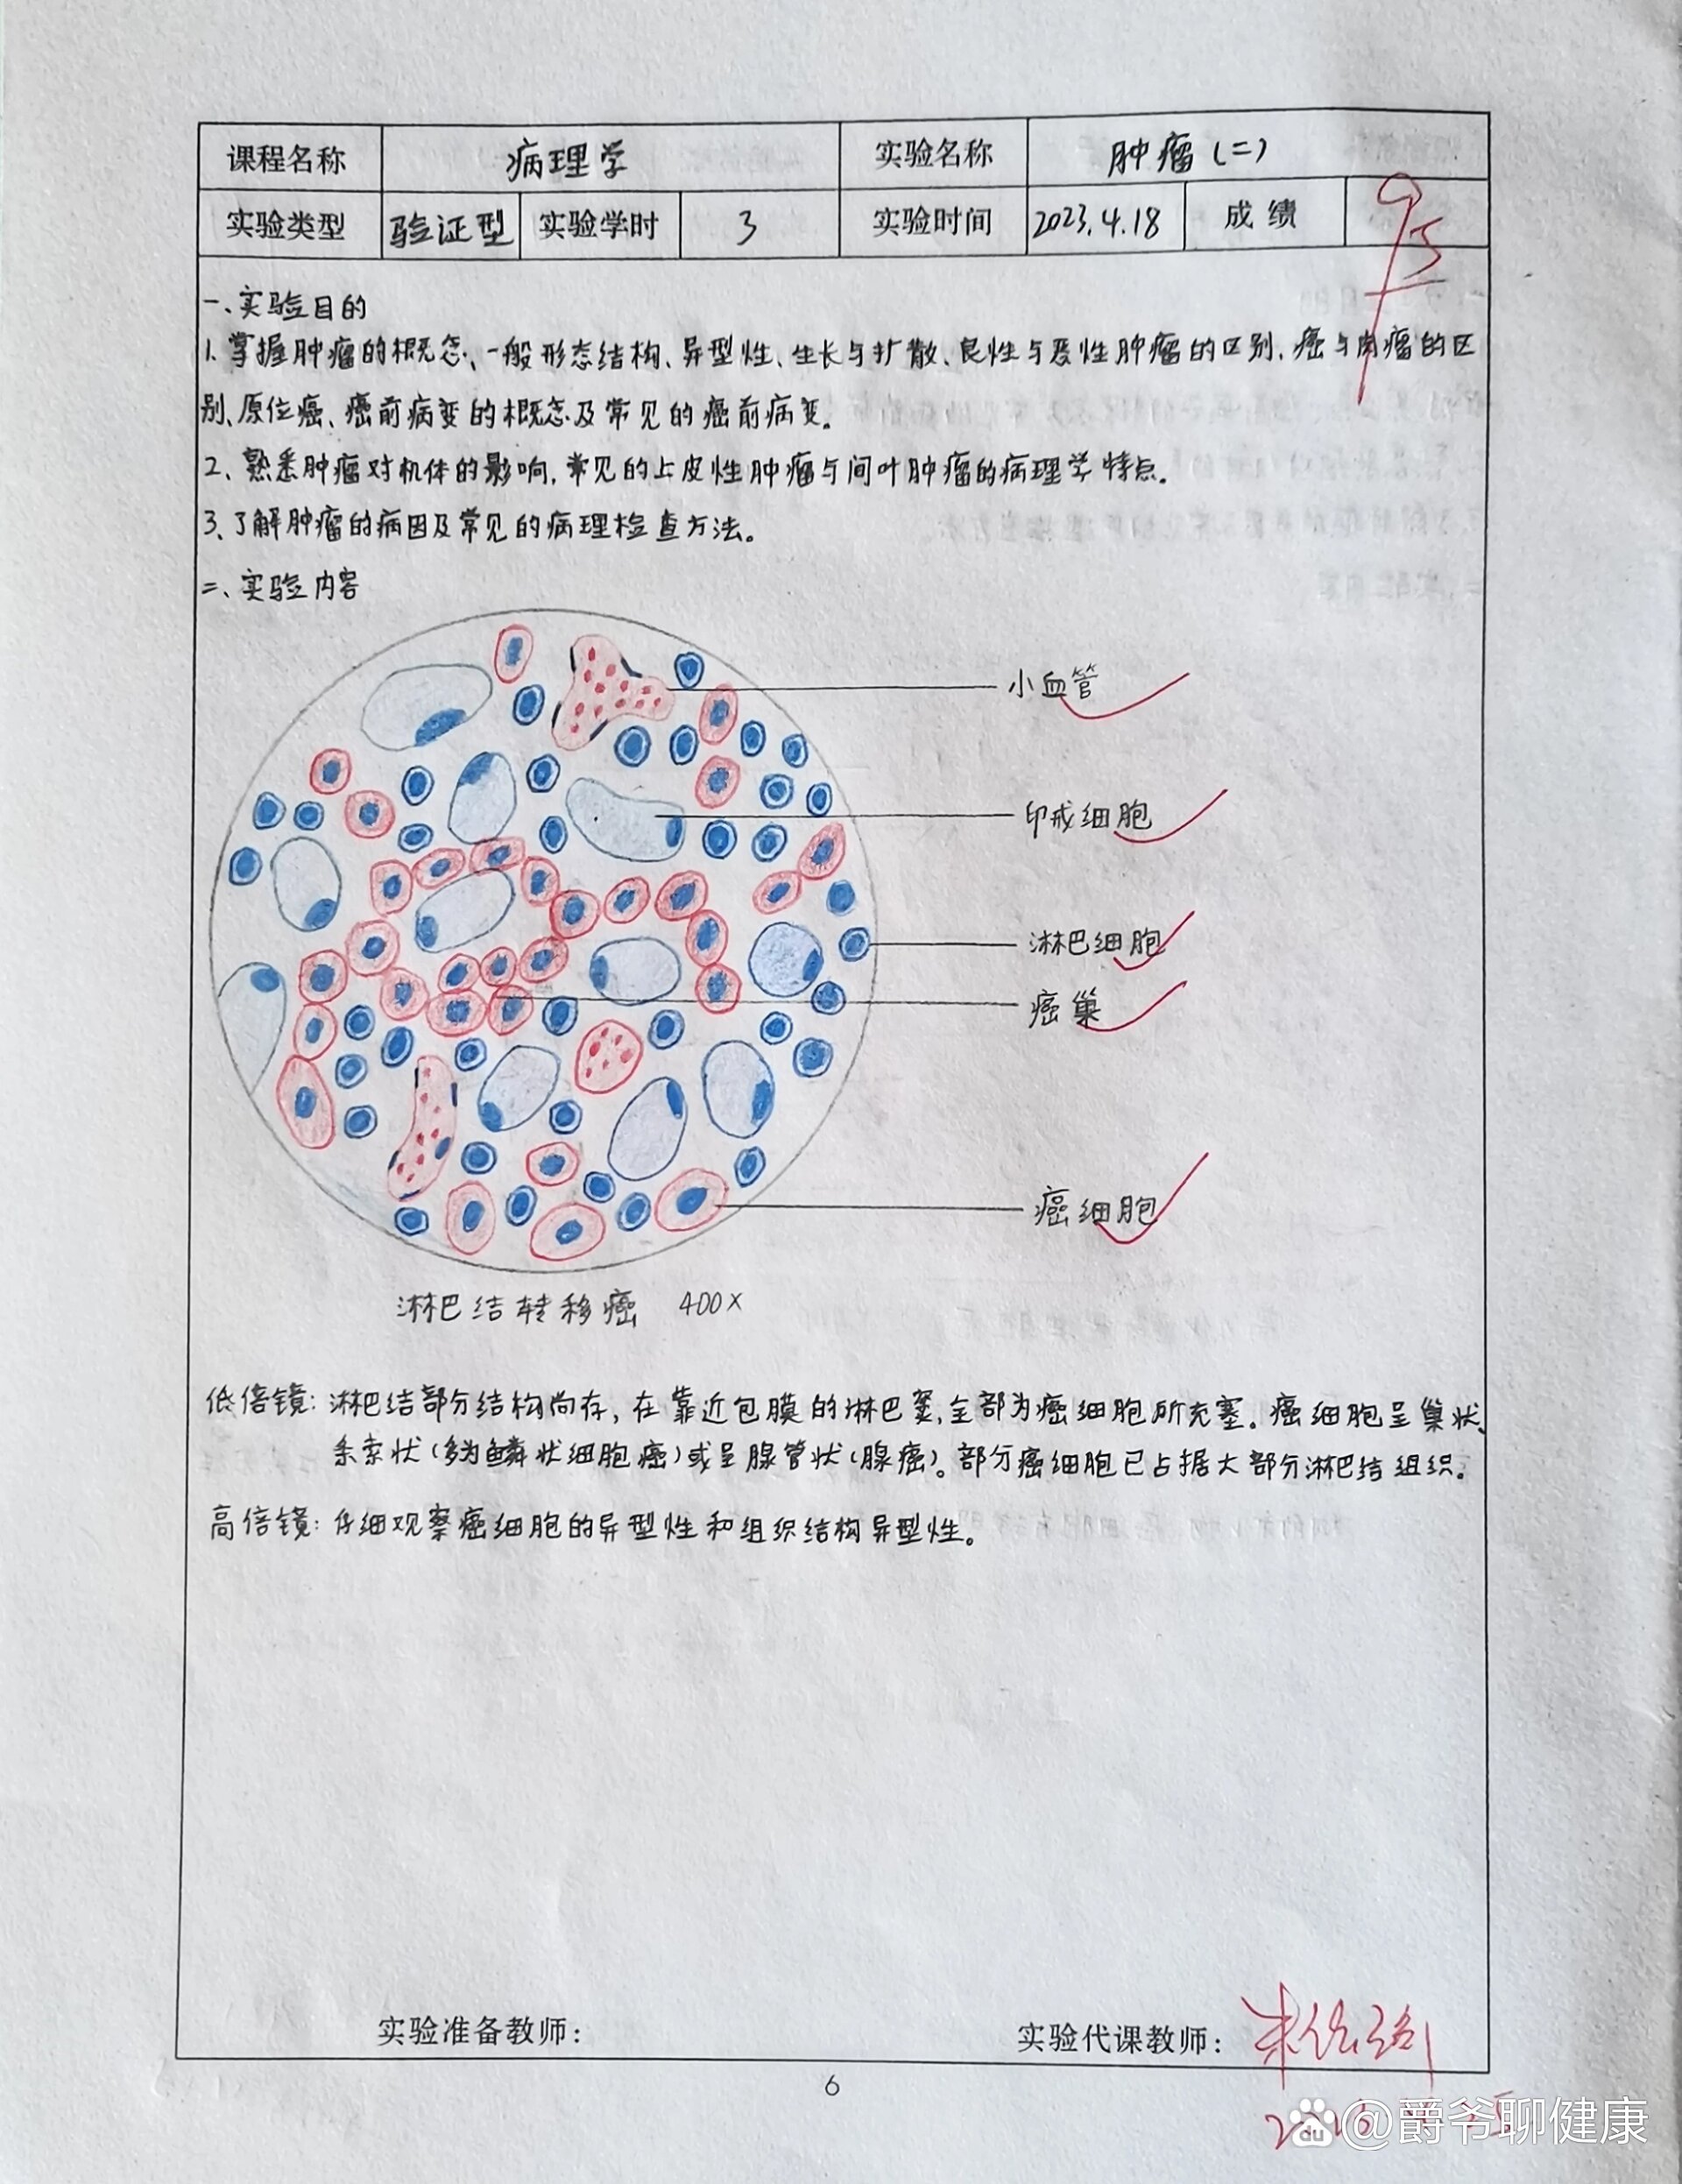 课程名称 病理学 实验名称 肿瘤(二)
实验类型 验证型 实验学时 3 实验时间 2023.4.18 成绩 95
一、实验目的
1.掌握肿瘤的概念、一般形态结构、异型性、生长与扩散、良性与恶性肿瘤的区别、癌与肉瘤的区
别、原位癌、癌前病变的概念及常见的癌前病变。
2、熟悉肿瘤对机体的影响,常见的上皮性肿瘤与间叶肿瘤的病理学特点。
3、了解肿瘤的病因及常见的病理检查方法。
二、实验内容
小血管
印戒细胞
淋巴细胞
癌巢
癌细胞
淋巴结转移癌 400×
低倍镜:淋巴结部分结构尚存,在靠近包膜的淋巴窦,全部为癌细胞所充塞。癌细胞呈巢状、
条索状(多为鳞状细胞癌)或呈腺管状(腺癌)。部分癌细胞已占据大部分淋巴结组织。
高倍镜:仔细观察癌细胞的异型性和组织结构异型性。
实验准备教师:
实验代课教师:
6
du @爵爷聊健康